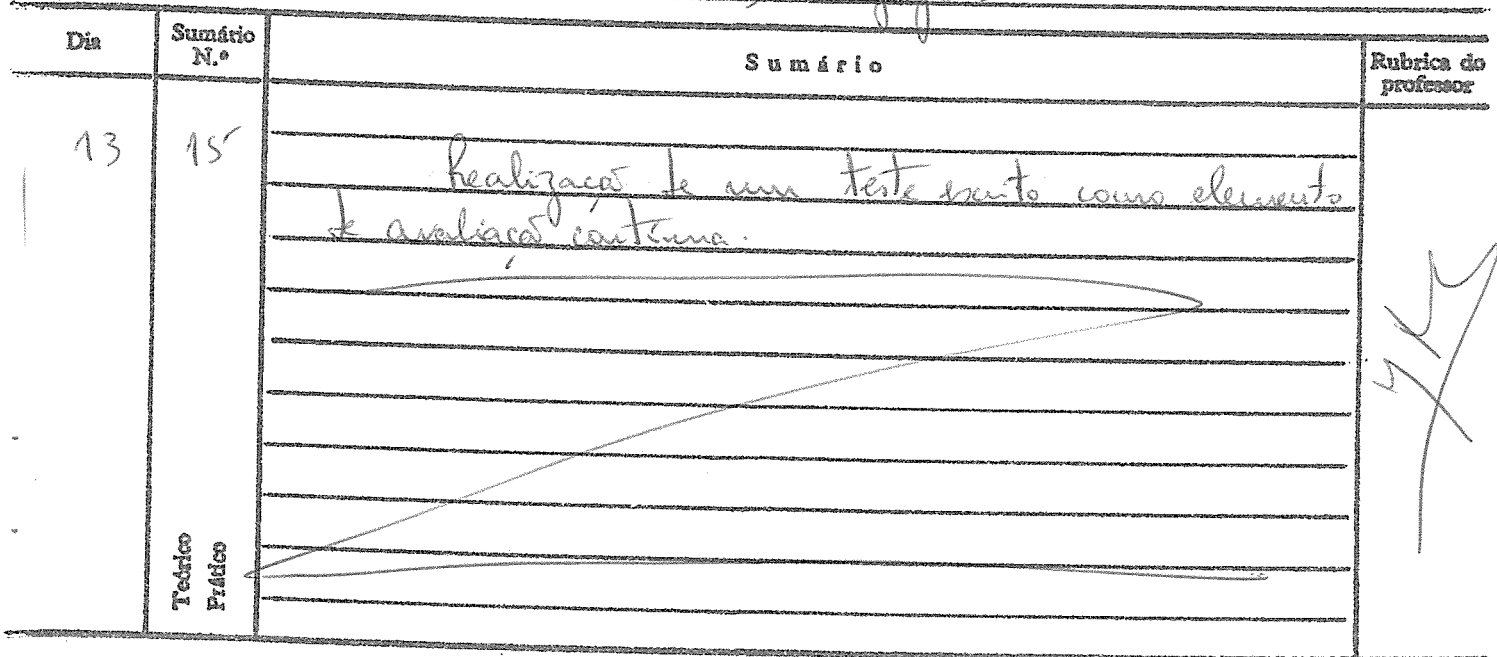 Dia
Sumário N.º
Sumário
Rubrica do professor
13
15
Realização de um teste escrito como elemento
de avaliação contínua.
Teórico
Prático